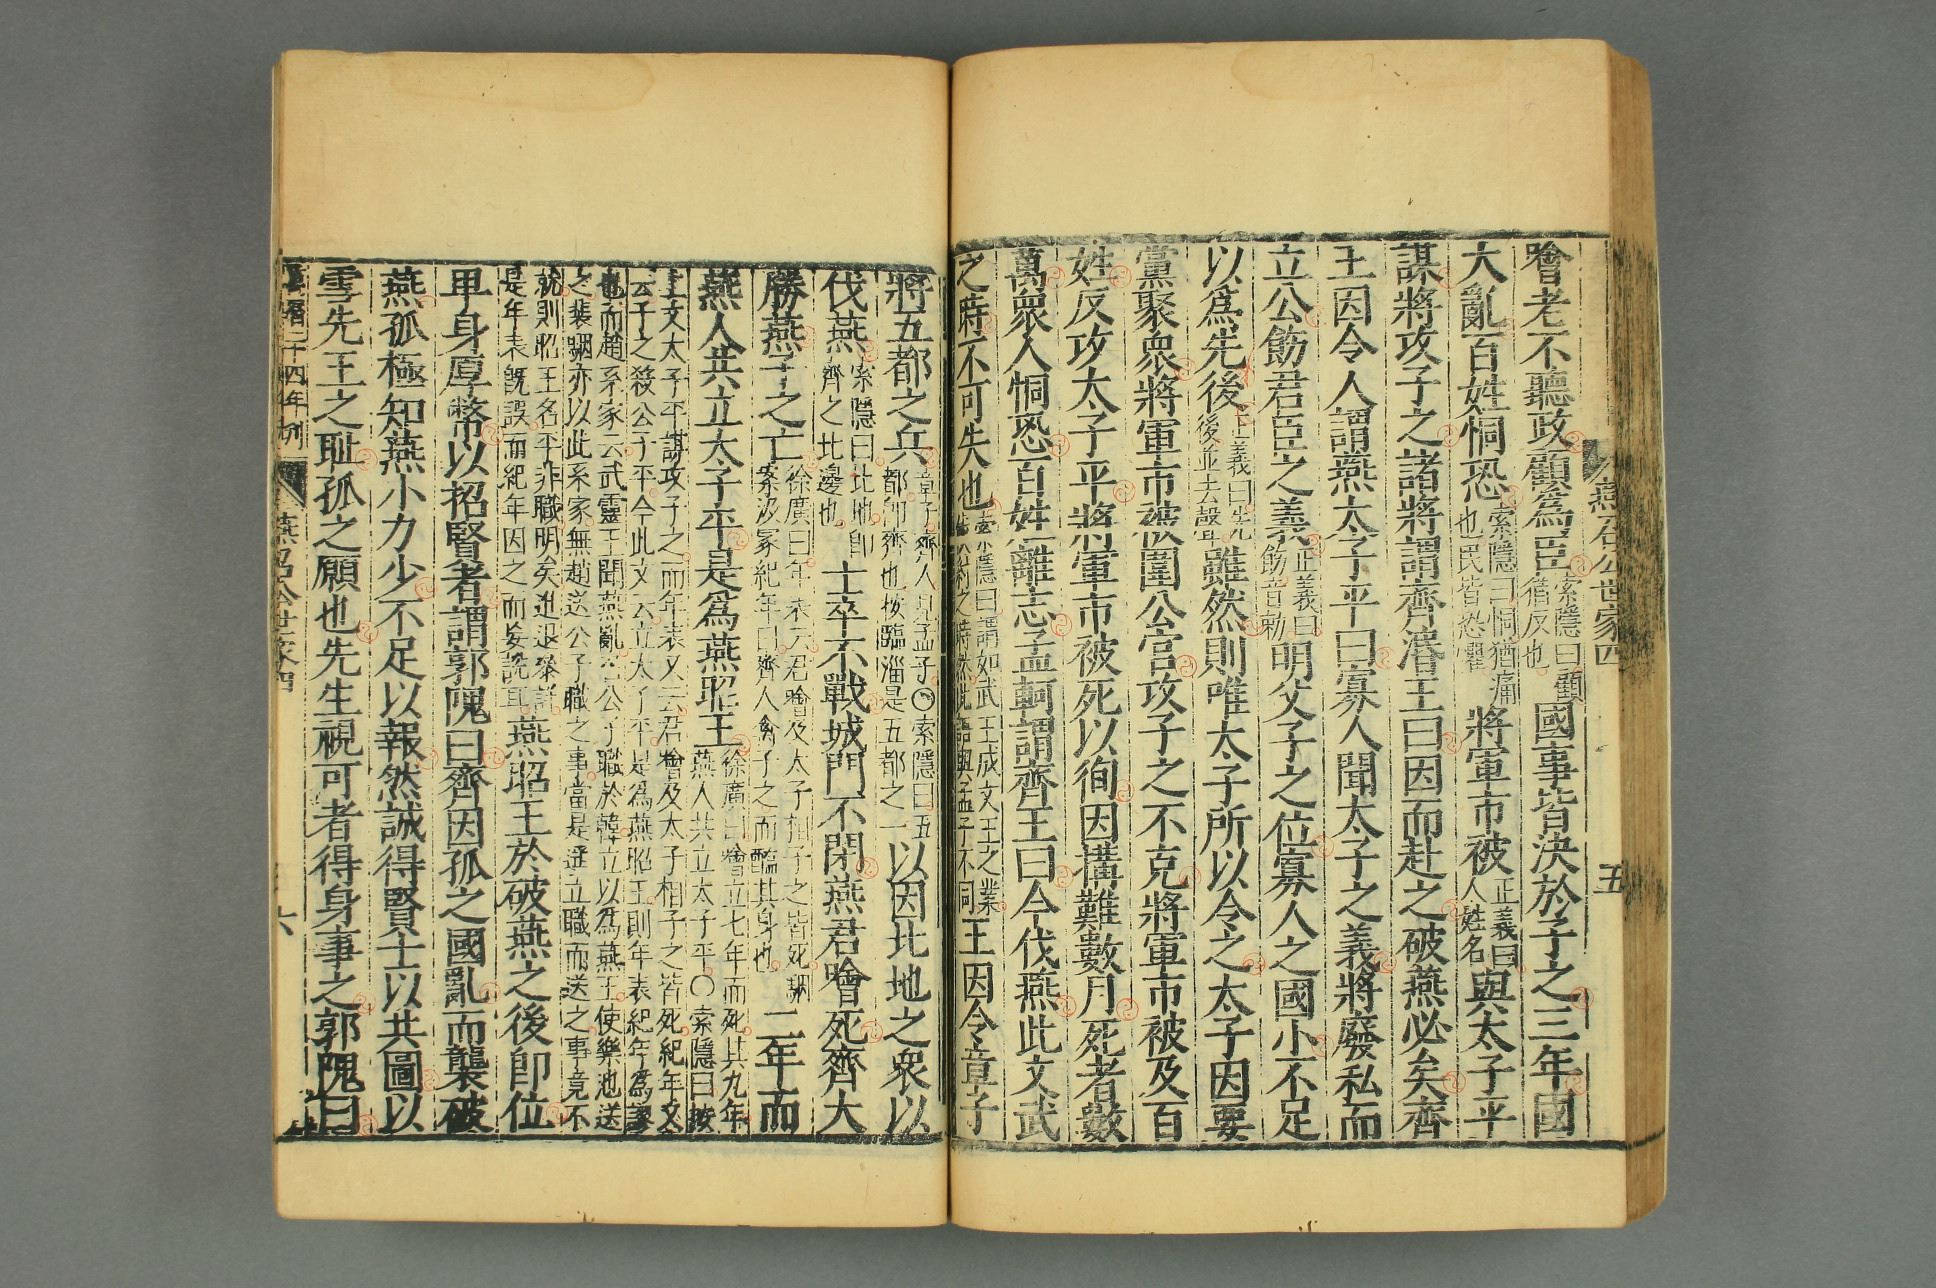 燕召公世家四
五
噲老不聽政顧爲臣索隱曰顧猶反也國事皆決於子之三年國
大亂百姓恫恐索隱曰恫猶痛也民皆恐懼將軍市被正義曰人姓名與太子平
謀將攻子之諸將謂齊湣王曰因而赴之破燕必矣齊
王因令人謂燕太子平曰寡人聞太子之義將廢私而
立公飭君臣之義正義曰飭音勅明父子之位寡人之國小不足
以爲先後正義曰先後並去聲雖然則唯太子所以令之太子因要
黨聚衆將軍市被圍公宮攻子之不克將軍市被及百
姓反攻太子平將軍市被死以徇因搆難數月死者數
萬衆人恫恐百姓離志孟軻謂齊王曰今伐燕此文武
之時不可失也索隱曰謂如武王成文王之業時然與孟子不同王因令章子
將五都之兵章子齊人見孟子〇索隱曰五都卽齊也按臨淄是五都之一以因北地之衆以
伐燕索隱曰北地卽齊之北邊也士卒不戰城門不閉燕君噲死齊大
勝燕子之亡徐廣曰年表云君噲及太子相子之皆死駰案汲冢紀年曰齊人禽子之而醢其身也二年而
燕人共立太子平是爲燕昭王徐廣曰噲立七年而死其九年燕人共立太子平〇索隱曰按
上文太子平謀攻子之而年表又云君噲及太子相子之皆死紀年又
云子之殺公子平今此文云立太子平是爲燕昭王則年表紀年爲謬
也而趙系家云武靈王聞燕亂召公子職於韓立以爲燕王使樂池送
之裴駰亦以此系家無趙送公子職之事當是遥立職而送之事竟不
就則昭王名平非職明矣進退參詳
是年表旣誤而紀年因之而妄說耳燕昭王於破燕之後卽位
卑身厚幣以招賢者謂郭隗曰齊因孤之國亂而襲破
燕孤極知燕小力少不足以報然誠得賢士以共圖以
雪先王之恥孤之願也先生視可者得身事之郭隗曰
二十四年刊
燕召公世家四
六